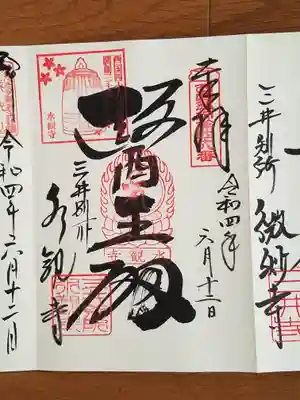 三井別所
微妙寺
奉拝
令和四年
六月十二日
醫王殿
水観寺
水観寺
三井別所
水観寺
令和四年六月十二日